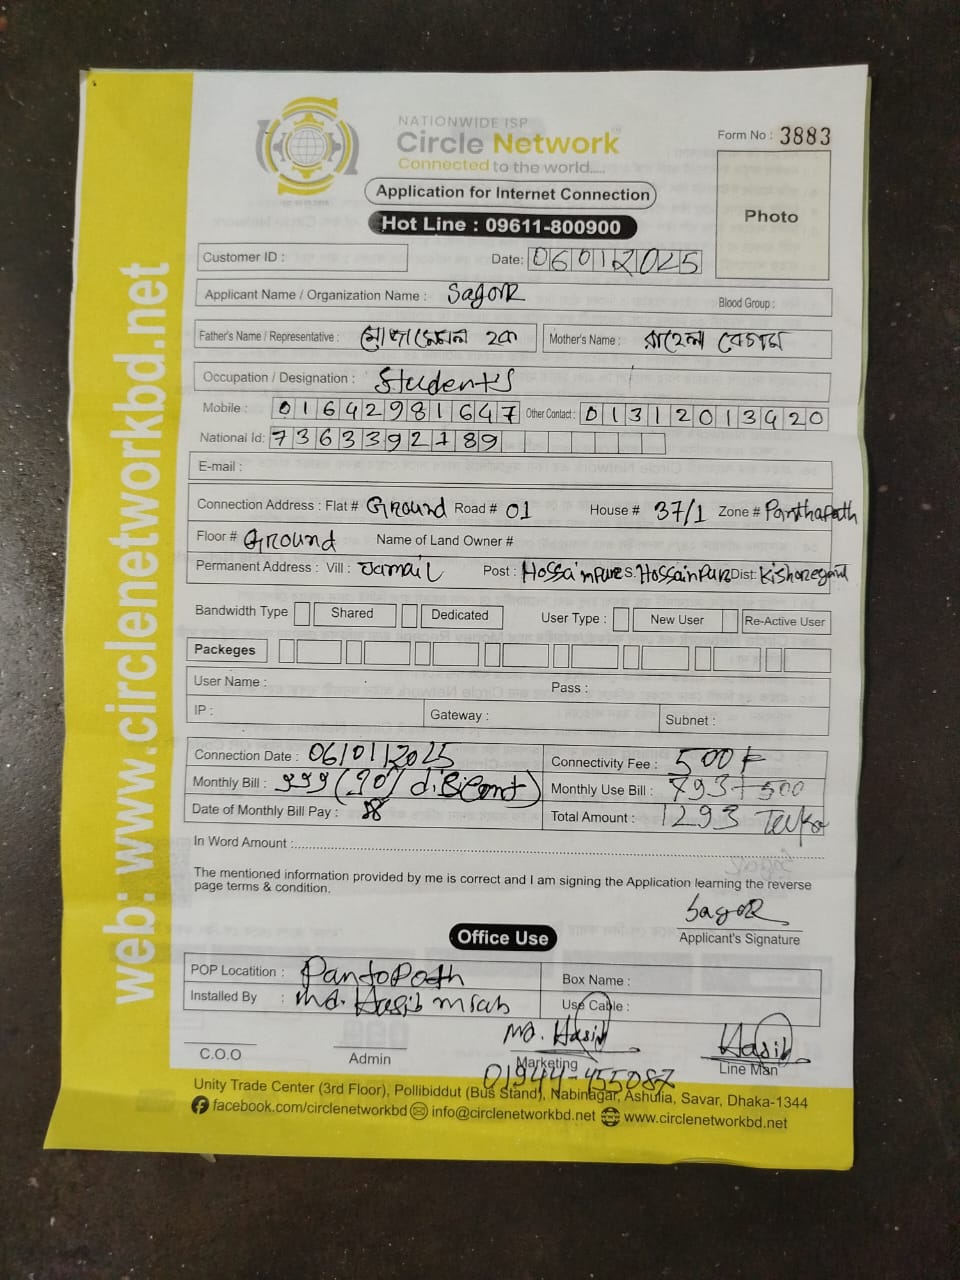 NATIONWIDE ISP
Circle Network
Connected to the world....
Form No : 3883
Application for Internet Connection
Hot Line : 09611-800900
Photo
Customer ID :
Date: 06012025
Applicant Name / Organization Name : SagoR
Blood Group :
Father's Name / Representative : হক
Mother's Name : রাহেলা বেগম
Occupation / Designation : Students
Mobile : 01642981647 Other Contact : 01312013420
National Id: 7363392189
E-mail :
Connection Address : Flat # Ground Road # 01 House # 37/1 Zone # Panthapath
Floor # Ground Name of Land Owner #
Permanent Address : Vill : Jamail Post : Hossainpur P.S: HossainPur Dist: Kishoregonj
Bandwidth Type Shared Dedicated User Type : New User Re-Active User
Packeges
User Name : Pass :
IP : Gateway : Subnet :
Connection Date : 06/01/2025 Connectivity Fee : 500 ৳
Monthly Bill : Monthly Use Bill : 793+500
Date of Monthly Bill Pay : Total Amount : 1293 Taka
In Word Amount :
The mentioned information provided by me is correct and I am signing the Application learning the reverse
page terms & condition.
SagoR
Applicant's Signature
Office Use
POP Locatition : PantoPath Box Name :
Installed By : Md. Hasib miah Use Cable :
Md. Hasib Hasib
C.O.O Admin Marketing Line Man
01944-455087
Unity Trade Center (3rd Floor), Pollibiddut (Bus Stand), Nabinagar, Ashulia, Savar, Dhaka-1344
facebook.com/circlenetworkbd info@circlenetworkbd.net www.circlenetworkbd.net
web: www.circlenetworkbd.net